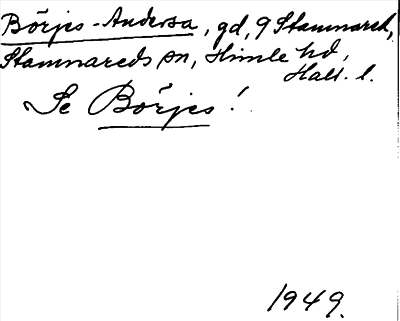 Börjes-Andersa, gd, 9 Stamnared,
Stamnareds sn, Himle hd,
Hall. l.
Se Börjes!
1949.